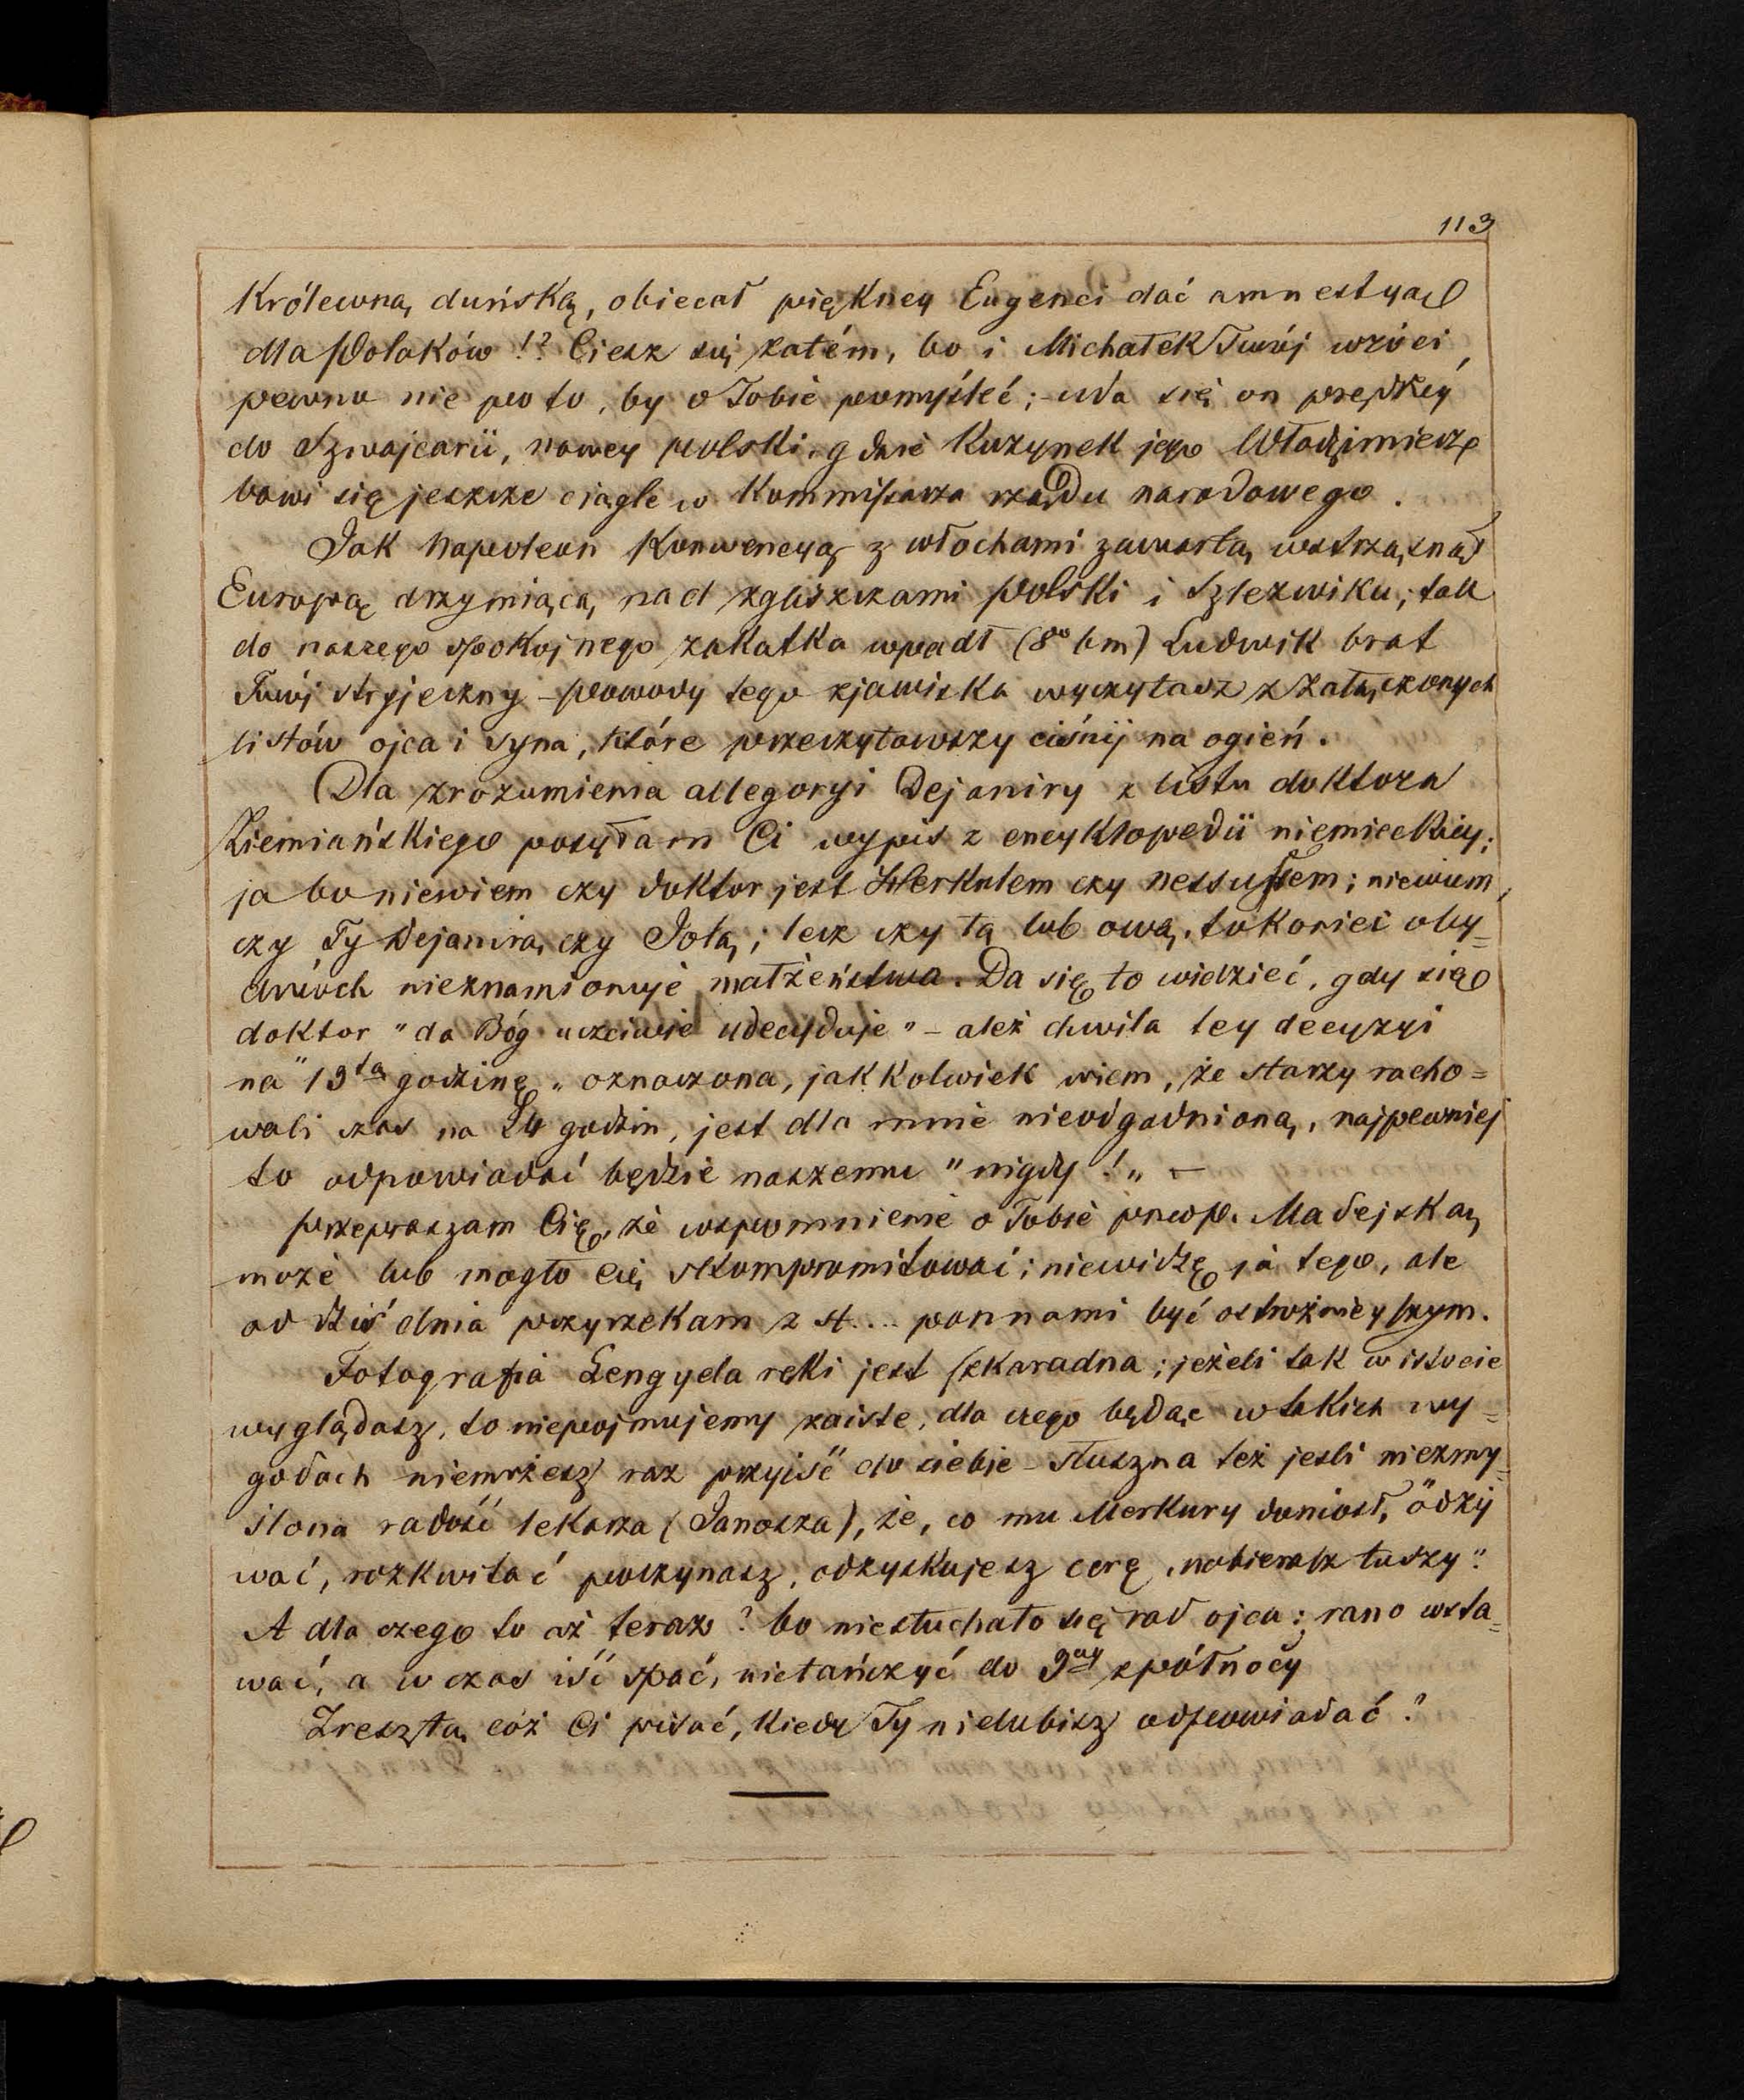 113
Królewną duńską, obiecał piękney Eugenci dać amnestyą
dla Polaków!? Ciesz się zatém, bo i Michałek Twój wróci,
pewno nie po to, by o Tobie pomyśleć; – uda się on prędzey
do Szwajcarii, nowey Polski, gdzie Kuzynek jego Włodzimierz
bawi się jeszcze ciągle w Kommisarza rządu narodowego.
Jak Napoleon Konwencyą z włochami zawartą wstrząsnął
Europą drzymiącą nad zgliszczami Polski i Szlezwiku; tak
do naszego spokojnego zakatka wpadł (8º bm) Ludwik brat
Twój stryjeczny – powody tego zjawiska wyczytasz z załączonych
listów ojca i syna, które przeczytawszy ciśnij na ogień.
Dla zrozumienia allegoryi Dejaniry z listu doktora
Ziemiańskiego posyłam Ci wypis z encyklopedii niemieckiey;
ja bo niewiem czy doktor jest Herkulem czy Nessusem; niewiem,
czy Ty Dejanirą czy Jolą; lecz czy tą lub ową, to koniec oby=
dwóch nieznamionuje małżeństwa. Da się to widzieć, gdy się
doktor "da Bóg uczciwie udecyduje" – ależ chwila tey decyzyi
na "13ta godzinę" oznaczona, jakkolwiek wiem, że starzy racho=
wali czas na 24 godzin, jest dla mnie nieodgadnioną, najpewniej
to odpowiadać będzie naszemu "nigdy!" –
Przepraszam Cię, że wspomnienie o Tobie przed p. Madejską
może lub mogło Cię skompromitować; niewidzę ja tego, ale
od dziś dnia przyrzekam z st... pannami być ostrożnieyszym.
Fotografia Lengyela ręki jest szkaradna; jeżeli tak w istocie
wyglądasz, to niepojmujemy zaiste, dla czego będąc w takich wy=
godach niemożesz raz przyiść do siebie – słuszna też jesli niezmy=
ślona radość lekarza (Janosza), że, co mu Merkury doniósł, "odży
wać, rozkwitać poczynasz, odzyskujesz cerę, nabierasz tuszy".
A dla czego to aż teraz? bo niesłuchało się rad ojca: rano wsta=
wać, a w czas iść spać, nietańczyć do 9ey z północy
Zresztą cóż Ci pisać, kiedy Ty nielubisz odpowiadać?